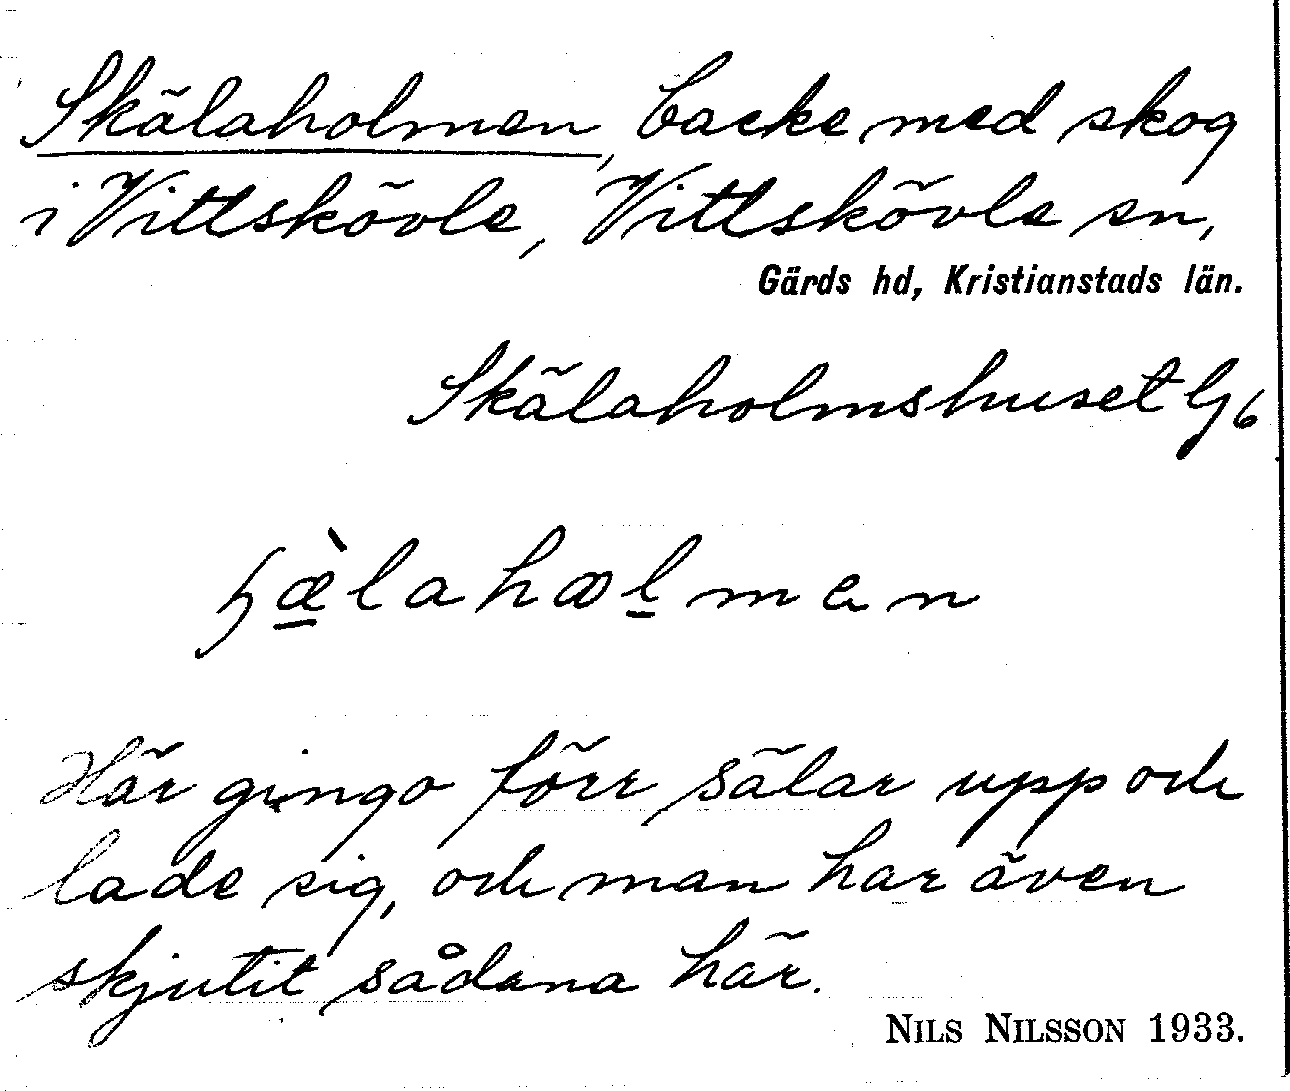 Skälaholmen, backe med skog
i Vittskövle, Vittskövle sn,
Gärds hd, Kristianstads län.
Skälaholmshuset
hæ̀lahølmen
Här gingo förr sälar upp och
lade sig, och man har även
skjutit sådana här.
NILS NILSSON 1933.